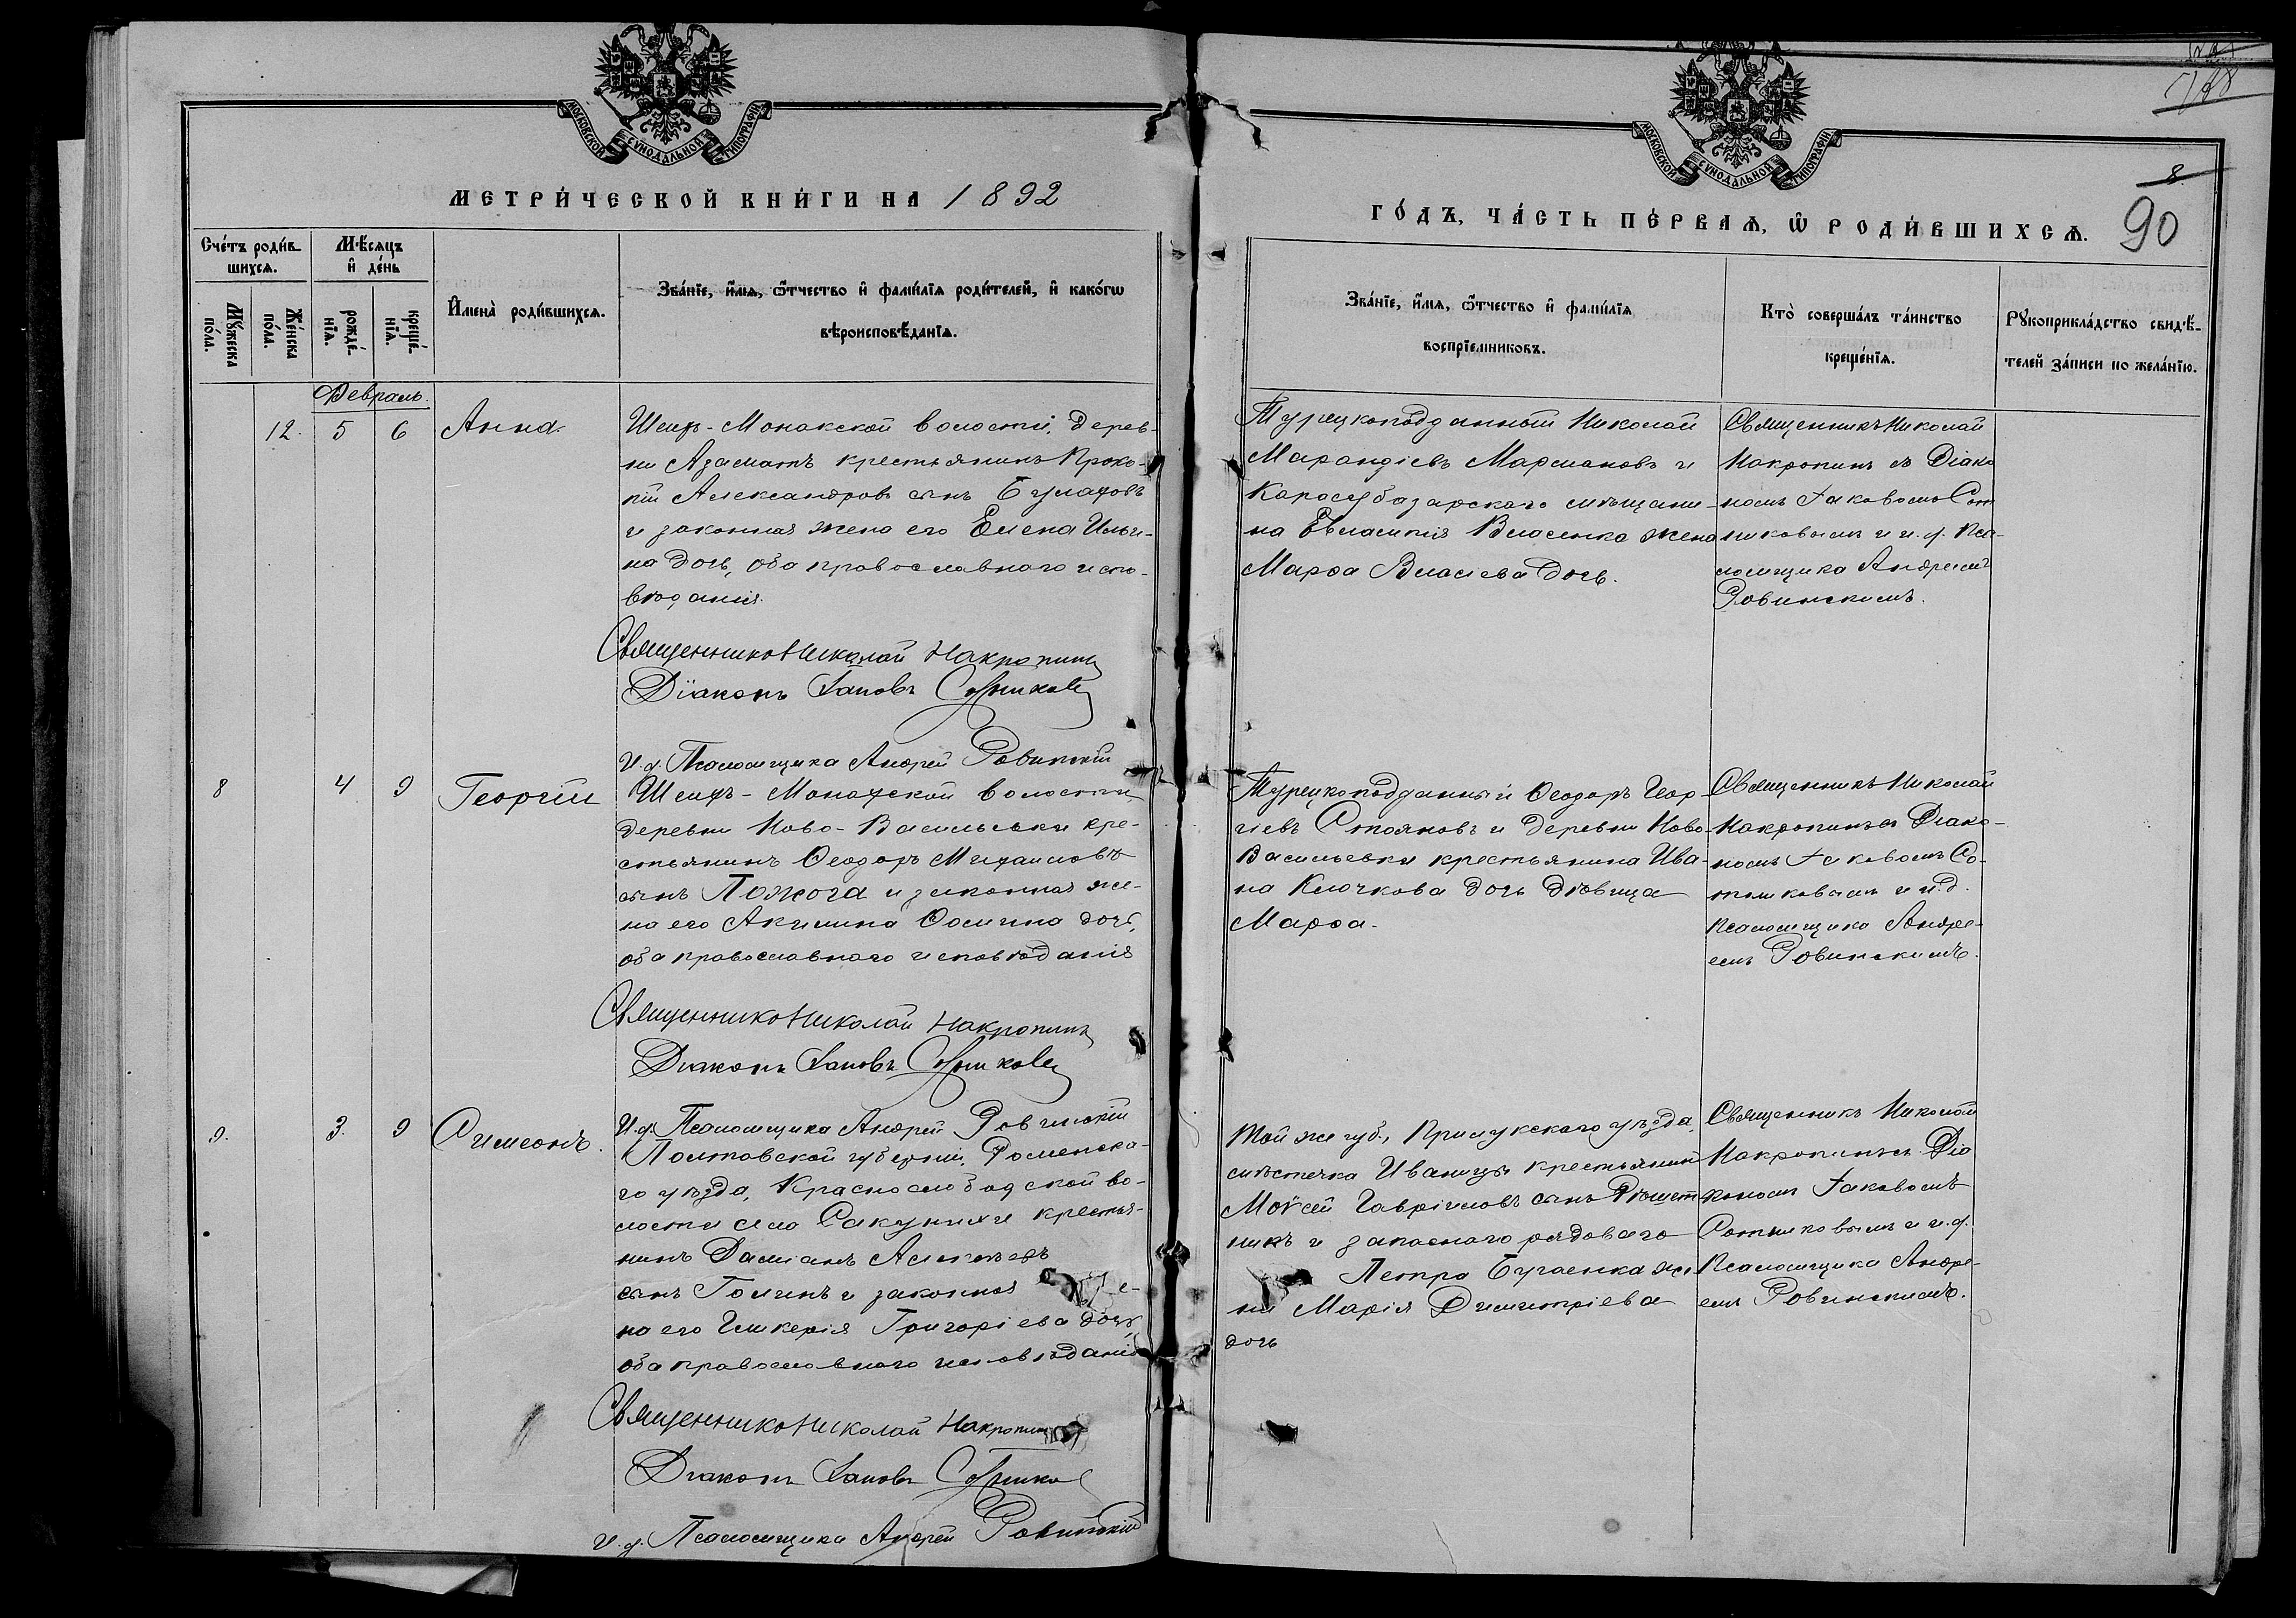 МОСКОВСКОЙ СѴНОДАЛЬНОЙ ТИПОГРАФІИ
МЕТРИ́ЧЕСКОЙ КНИ́ГИ НА 1892
Сче́тъ роди́в-
шихсѧ.
Мꙋ́жеска
по́ла.
Же́нска
по́ла.
Мѣ́сяцъ
и҆ де́нь
рожде́-
нїѧ.
креще́-
нїѧ.
И҆мена̀ роди́вшихсѧ.
Зва́нїе, и҆́мѧ, ѻ҆́тчество и҆ фами́лїѧ роди́телей, и҆ како́гѡ
вѣроисповѣ́данїѧ.
Февраль.
12. 5 6 Анна.
Шеихъ-Монакской волости, дерев-
ни Азаматъ крестьянинъ Проко-
пій Александровъ сынъ
и законная жена его Елена Ильи-
на дочь, оба православнаго испо-
вѣданія.
Священникъ Николай Накропинъ
Діаконъ Іаковъ Сотниковъ
И. д. Псаломщика Андрей Ровинскій
8 4 9 Георгій
Шеихъ-Монахской волости,
деревни Ново-Васильевки кре-
стьянинъ Ѳеодоръ Михаиловъ
сынъ Пожога и законная же-
на его Акилина Ѳомина дочь,
оба православнаго исповѣданія
Священникъ Николай Накропинъ
Діаконъ Іаковъ Сотниковъ
И. д. Псаломщика Андрей Ровинскій
9. 3. 9 Симеонъ.
Полтавской губерніи, Роменска-
го уѣзда, Краснослободской во-
лости села Ракунихи крестья-
нинъ Даміанъ Алексѣевъ
сынъ Голинъ и законная же-
на его Гликерія Григоріева дочь,
оба православнаго исповѣданія
Священникъ Николай Накропинъ
Діаконъ Іаковъ Сотниковъ
И. д. Псаломщика Андрей Ровинскій
МОСКОВСКОЙ СѴНОДАЛЬНОЙ ТИПОГРАФІИ
8.
ГО́ДЪ, ЧА́СТЬ ПЕ́РВАѦ, Ѡ҆ РОДИ́ВШИХСѦ. 90
Зва́нїе, и҆́мѧ, ѻ҆́тчество и҆ фами́лїѧ
воспрїе́мниковъ.
Кто̀ соверша́лъ та́инство
креще́нїѧ.
Рꙋкоприкла́дство свидѣ́-
телей за́писи по жела́нїю.
Турецкоподданный Николай
Марандіевъ Мармановъ и
Карасубазарскаго мѣщани-
на Евлампія Власенка жена
Марѳа Власіева дочь.
Священникъ Николай
Накропинъ съ Діако
номъ Іаковомъ Сот
никовымъ и и. д. Пса-
ломщика Андреемъ
Ровинскимъ.
Турецкоподданный Ѳеодоръ Геор-
гіевъ Стояновъ и деревни Ново-
Васильевки крестьянина Ива-
на Ключкова дочь дѣвица
Марѳа.
Священникъ Николай
Накропинъ съ Діако-
номъ Іаковомъ Со-
тниковымъ и и. д.
Псаломщика Андре-
емъ Ровинскимъ.
Той же губ., Прилукскаго уѣзда,
мѣстечка Иваницы крестьянинъ
Моѵсей Гавріиловъ сынъ Рѣшет-
никъ и запаснаго рядоваго
Петра Бугаенка же-
на Марія Димитріева
дочь
Священникъ Николай
Накропинъ съ Діа
кономъ Іаковомъ
Сотниковымъ и и. д.
Псаломщика Андре-
емъ Ровинскимъ.